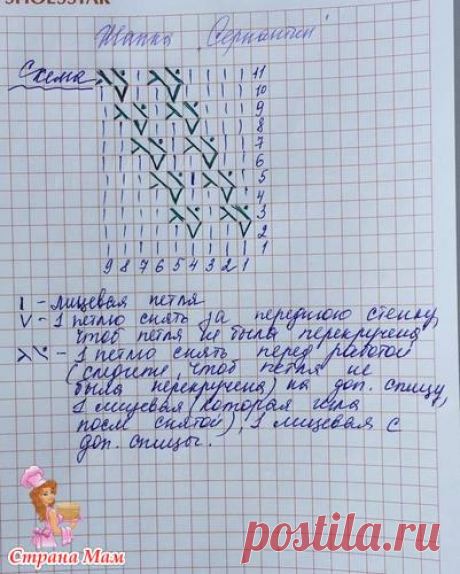 Шапка "Серпантин"
Схема
11
10
9
8
7
6
5
4
3
2
1
9 8 7 6 5 4 3 2 1
I - лицевая петля
V - 1 петлю снять за переднюю стенку,
чтоб петля не была перекручена
1 петлю снять перед работой
(следите, чтоб петля не
была перекручена) на доп. спицу,
1 лицевая (которая шла
после снятой), 1 лицевая с
доп. спицы.
Страна Мам
postila.ru